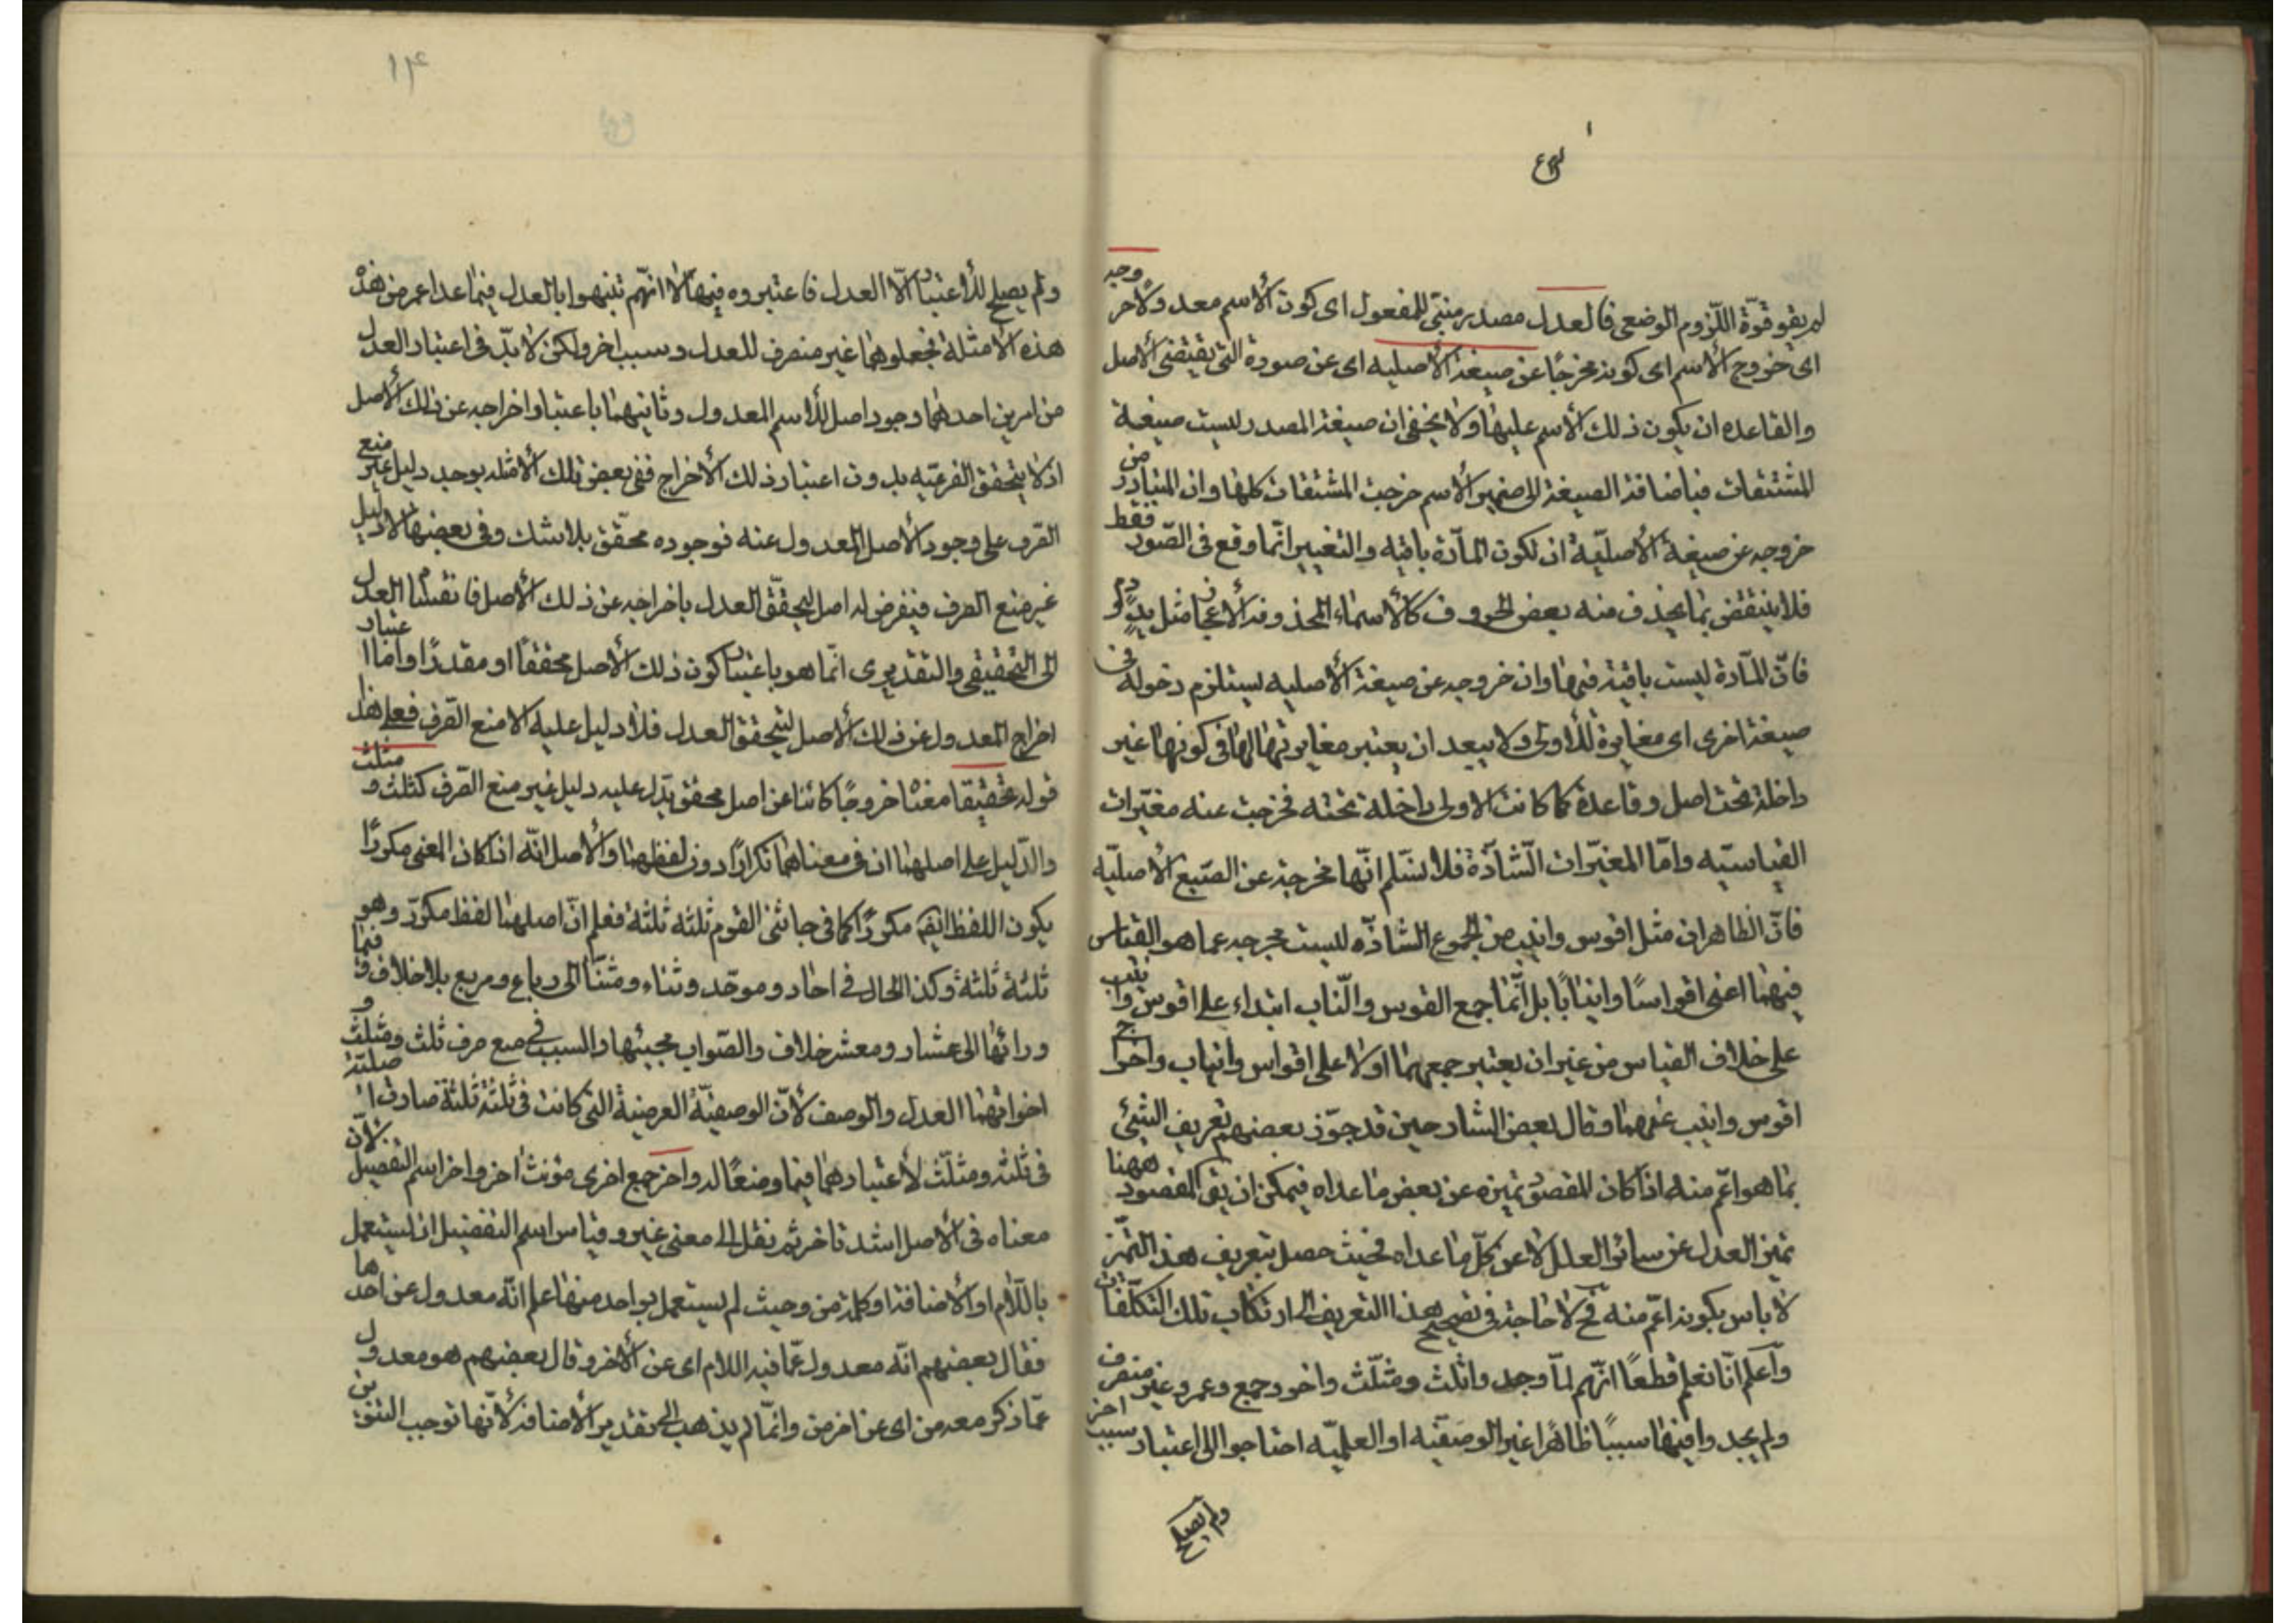 لم يقو قوّة اللّزوم الوضعي فالعدل مصدر مبنيّ للمفعول اى كون الأسم معدولا وخروجه
اى خروج الأسم اى كونه مخرجًا عن صيغة الأصليه اى عن صورة التى يقتضى الأصل
والقاعده ان يكون ذلك الأسم عليها ولا يخفى ان صيغة المصدر ليست صيغة
المشتقات فباضافة الصيغة الى ضمير الأسم خرجت المشتقات كلها وان المتبادر من
خروجه عن صيغة الأصليّة ان تكون المآدة باقيه والتغيير انّما وقع فى الصّورة فقط
فلا ينتقض بما يحذف منه بعض الحروف كالأسماء المحذوفة الأعجاز مثل يدٍ ودمٍ
فانّ المآدة ليست باقية فيها وان خروجه عن صيغة الأصليه يستلزم دخوله فى
صيغة اخرى اى مغايرة للأولى ولا يبعد ان يعتبر مغايرتها لها فى كونها غير
داخلة تحت اصل وقاعدة كما كانت الاولى داخلة تحته فخرجت عنه مغيّرات
القياسيّه وامّا المغيّرات الشّاذّة فلا نسّلم انّها مخرجة عن الصّيغ الأصليّه
فانّ الظاهر ان مثل اقوس وانيب من الجموع الشاذّه ليست مخرجه عما هو القياس
فيهما اعنى اقواسًا وانيابًا بل انّما جمع القوس والنّاب ابتداء على اقوس وانيب
على خلاف القياس من غير ان يعتبر جمعهما اولا على اقواس وانياب واخراج
اقوس وانيب عنهما وقال بعض الشارحين قد جوّز بعضهم تعريف الشئ
بما هو اعّم منه اذا كان المقصود تميزه عن بعض ما عداه فيمكن ان يق المقصود ههنا
تميز العدل عن سائر العلل لا عن كلّ ما عداه فحيث حصل بتعريف هذا التّميز
لا باس بكونه اعّم منه فح لا حاجة فى تصحيح هذا التعريف الى ارتكاب تلك التكلّفات
وآعلم انّا نعلم قطعًا انّهم لمّا وجدوا ثلث ومثلّث واخر وجمع وعمر غير منصرف
ولم يجدوا فيها سببًا ظاهرًا غير الوصفيّه او العلميّه احتاجوا الى اعتبار سبب اخر
ولم يصلح
١٤
ولم يصلح للأعتبار الّا العدل فاعتبروه فيها لا انّهم تنبهوا بالعدل فيما عدا عمر من هذه
هذه الأمثلة فجعلوها غير منصرف للعدل وسبب اخر ولكن لا بدّ فى اعتبار العدل
من امرين احدهما وجود اصل للأسم المعدول وثانيهما باعتبار اخراجه عن ذلك الأصل
اذ لا يتحقق الفرعيّه بدون اعتبار ذلك الأخراج ففى بعض تلك الأمثله يوجد دليل غير منع
الصّرف على وجود الأصل المعدول عنه فوجوده محقّق بلا شك وفى بعضها لا دليل
غير منع الصرف فيفرض له اصل ليتحقّق العدل باخراجه عن ذلك الأصل فانقسام العدل
الى التحقيقى والتقديرى انّما هو باعتبار كون ذلك الأصل محققًا او مقدرًا وامّا اعتبار
اخراج المعدول عن ذلك الأصل ليتحقق العدل فلا دليل عليه الا منع الصّرف فعلى هذا
قوله تحقيقا معناه خروجًا كائنا عن اصل محقق يدّل عليه دليل غير منع الصّرف كثلث و مثلث
والدّليل على اصلهما ان فى معناهما تكرارًا دون لفظهما والأصل انّه اذا كان المعنى مكررًا
يكون اللفظ ايضًا مكررًا كما فى جائنى القوم ثلثه ثلثه فعلم انّ اصلهما لفظ مكرّر وهو
ثلثة ثلثة وكذا الحال فى احاد وموحّد وثناء ومثنّا الى رباع ومربع بلا خلاف وفيما
ورائها الى عشار ومعشر خلاف والصّواب مجيئها والسبب فى منع صرف ثلث ومثلّث و
اخواتهما العدل والوصف لأنّ الوصفيّة العرضية التى كانت فى ثلثة ثلثة صارت اصليّة
فى ثلث ومثلّث لأعتبارهما فيما وضعًا له واخر جمع اخرى مؤنث اخر واخر اسم التفضيل لأنّ
معناه فى الأصل اشد تاخر ثم نقل الى معنى غير وقياس اسم التفضيل ان يستعمل
باللّام او الأضافة او كلمة من وحيث لم يستعمل بواحد منها علم انّه معدول عن احدها
فقال بعضهم انّه معدول عمّا فيه اللام اى عن الأخر وقال بعضهم هو معدول
عمّا ذكر معه من اى عن اخر من وانّما لم يذهب الى تقدير الأضافة لأنّها توجب التنوين